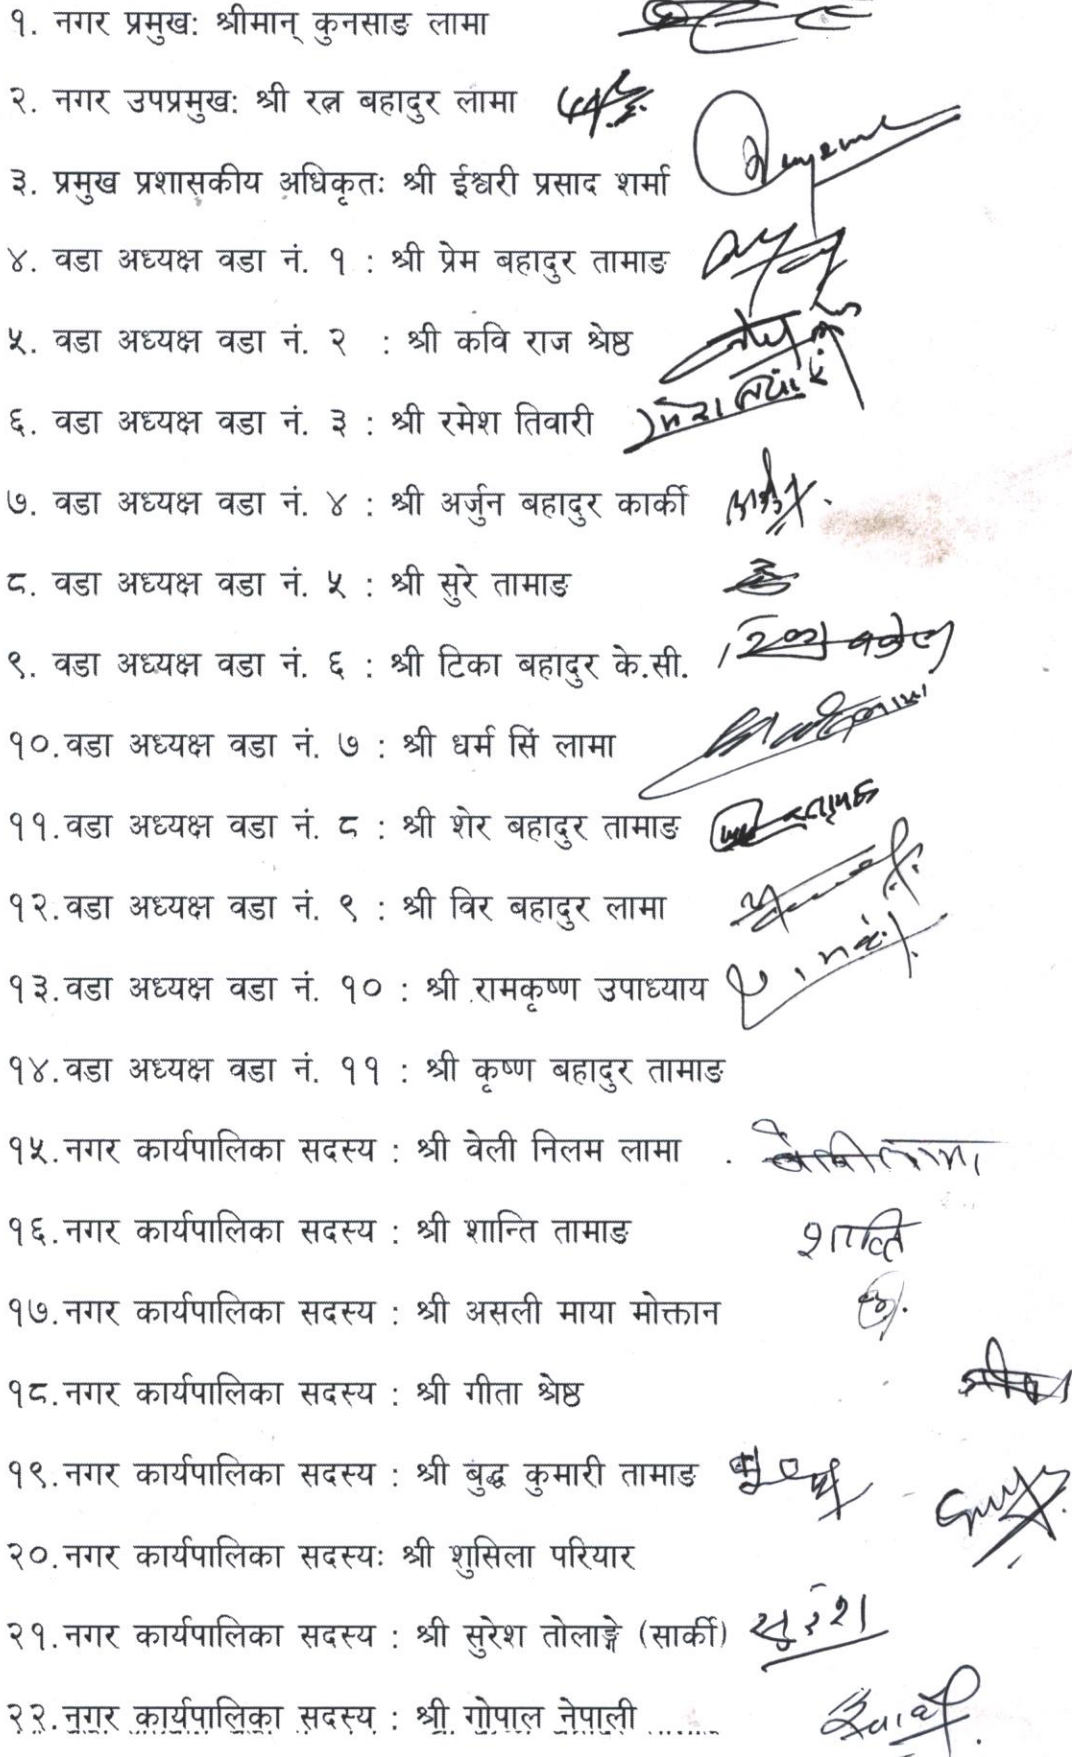 १. नगर प्रमुख: श्रीमान् कुनसाङ लामा
२. नगर उपप्रमुख: श्री रत्न बहादुर लामा
३. प्रमुख प्रशासकीय अधिकृतः श्री ईश्वरी प्रसाद शर्मा
४. वडा अध्यक्ष वडा नं. १ : श्री प्रेम बहादुर तामाङ
५. वडा अध्यक्ष वडा नं. २ : श्री कवि राज श्रेष्ठ
६. वडा अध्यक्ष वडा नं. ३ : श्री रमेश तिवारी
७. वडा अध्यक्ष वडा नं. ४ : श्री अर्जुन बहादुर कार्की
८. वडा अध्यक्ष वडा नं. ५ : श्री सुरे तामाङ
९. वडा अध्यक्ष वडा नं. ६ : श्री टिका बहादुर के.सी.
१०.वडा अध्यक्ष वडा नं. ७ : श्री धर्म सिं लामा
११.वडा अध्यक्ष वडा नं. ८ : श्री शेर बहादुर तामाङ
१२.वडा अध्यक्ष वडा नं. ९ : श्री विर बहादुर लामा
१३.वडा अध्यक्ष वडा नं. १० : श्री रामकृष्ण उपाध्याय
१४.वडा अध्यक्ष वडा नं. ११ : श्री कृष्ण बहादुर तामाङ
१५.नगर कार्यपालिका सदस्य : श्री वेली निलम लामा
१६.नगर कार्यपालिका सदस्य : श्री शान्ति तामाङ शान्ति
१७.नगर कार्यपालिका सदस्य : श्री असली माया मोक्तान
१८.नगर कार्यपालिका सदस्य : श्री गीता श्रेष्ठ
१९.नगर कार्यपालिका सदस्य : श्री बुद्ध कुमारी तामाङ
२०.नगर कार्यपालिका सदस्यः श्री शुसिला परियार
२१.नगर कार्यपालिका सदस्य : श्री सुरेश तोलाङ्गे (सार्की) सुरेश
२२.नगर कार्यपालिका सदस्य : श्री गोपाल नेपाली